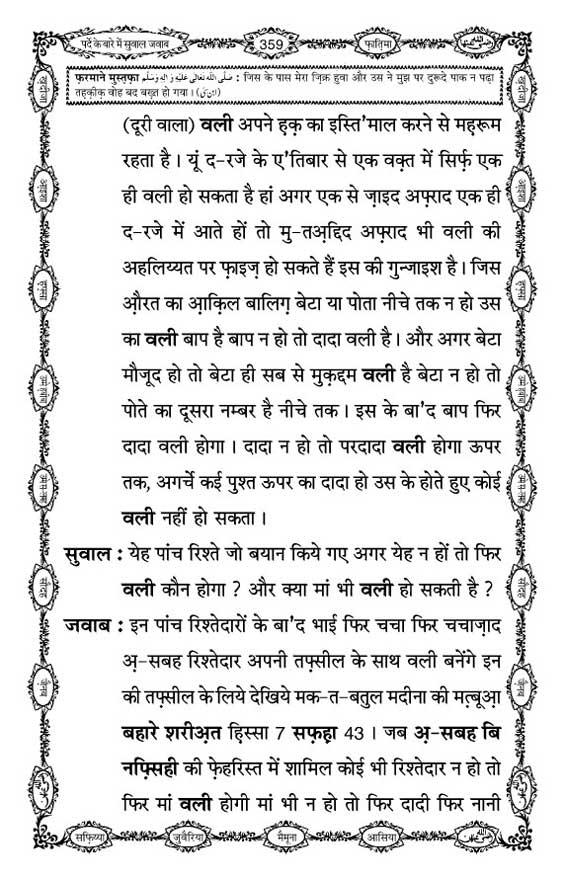 पर्दे के बारे में सुवाल जवाब
359
फ़ातिमा
फ़रमाने मुस्तफ़ा صَلَّى اللهُ تَعَالٰى عَلَيْهِ وَاٰلِهٖ وَسَلَّم : जिस के पास मेरा ज़िक्र हुवा और उस ने मुझ पर दुरूदे पाक न पढ़ा
तह़क़ीक़ वोह बद बख़्त हो गया ।
(दूरी वाला) वली अपने ह़क़ का इस्ति'माल करने से मह़रूम
रहता है । यूं द-रजे के ए'तिबार से एक वक़्त में सिर्फ़ एक
ही वली हो सकता है हां अगर एक से ज़ाइद अफ़्राद एक ही
द-रजे में आते हों तो मु-तअ़द्दिद अफ़्राद भी वली की
अहलिय्यत पर फ़ाइज़ हो सकते हैं इस की गुन्जाइश है । जिस
औ़रत का आ़क़िल बालिग़ बेटा या पोता नीचे तक न हो उस
का वली बाप है बाप न हो तो दादा वली है । और अगर बेटा
मौजूद हो तो बेटा ही सब से मुक़द्दम वली है बेटा न हो तो
पोते का दूसरा नम्बर है नीचे तक । इस के बा'द बाप फिर
दादा वली होगा । दादा न हो तो परदादा वली होगा ऊपर
तक, अगर्चे कई पुश्त ऊपर का दादा हो उस के होते हुए कोई
वली नहीं हो सकता ।
सुवाल : येह पांच रिश्ते जो बयान किये गए अगर येह न हों तो फिर
वली कौन होगा ? और क्या मां भी वली हो सकती है ?
जवाब : इन पांच रिश्तेदारों के बा'द भाई फिर चचा फिर चचाज़ाद
अ़-सबह रिश्तेदार अपनी तफ़्सील के साथ वली बनेंगे इन
की तफ़्सील के लिये देखिये मक-त-बतुल मदीना की मत़्बूआ़
बहारे शरीअ़त ह़िस्सा 7 सफ़ह़ा 43 । जब अ़-सबह बि
नफ़्सिही की फ़ेहरिस्त में शामिल कोई भी रिश्तेदार न हो तो
फिर मां वली होगी मां भी न हो तो फिर दादी फिर नानी
सफ़िय्या
जुवैरिया
मैमूना
आसिया